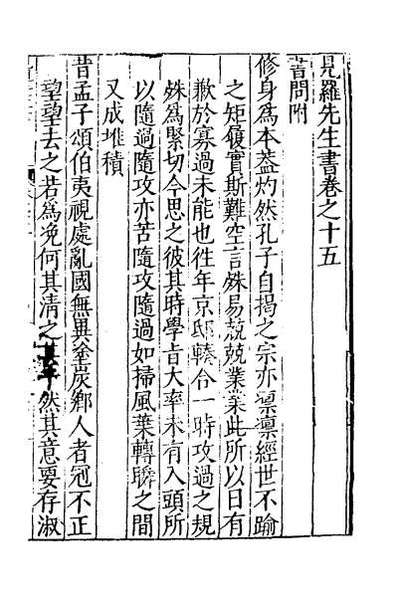 見羅先生書卷之十五
荅問附
修身爲本葢灼然孔子自揭之宗亦凛凛經世不踰
之矩履實斯難空言殊易兢兢業業此所以日有
歉於寡過未能也徃年京邸輳合一時攻過之規
殊爲緊切今思之彼其時學旨大率未有入頭所
以隨過隨攻亦苦隨攻隨過如掃風葉轉瞬之間
又成堆積
昔孟子頌伯夷視處亂國無異塗炭鄉人者冠不正
望望去之若爲凂何其清之甚然其意要存淑